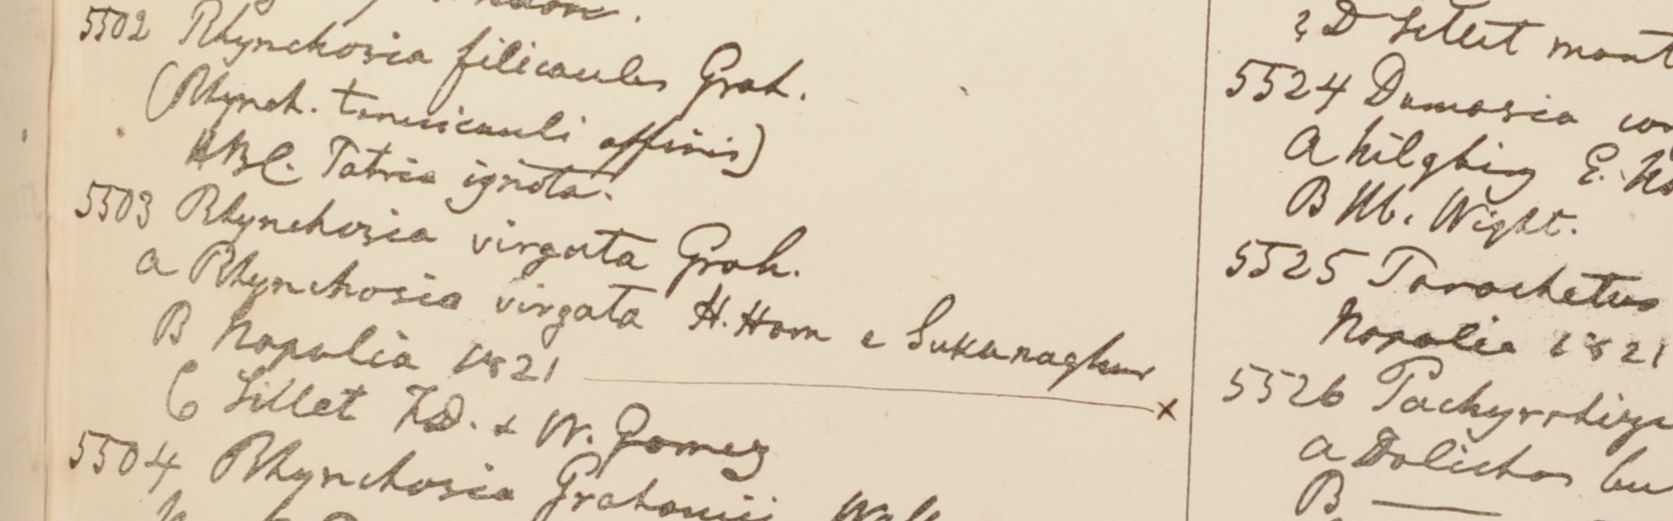 5502 Rhynchosia filicaules Grah.
(Rhynch. tenuicauli affinis)
HBC. Patria ignota.
5503 Rhynchosia virgata Grah.
a Rhynchosia virgata H. Ham e Sukanaghur
B Napalia 1821
C Sillet F.D. & W. Gomez
5504 Rhynchosia Grahamii Wall
? D Sillet mont
5524 Dumasia
a Nilghiry E.
B Hb. Wight.
5525 Parochetus
Napalia 1821
5526 Pachyrrhizu
a Dolichos bu
B —